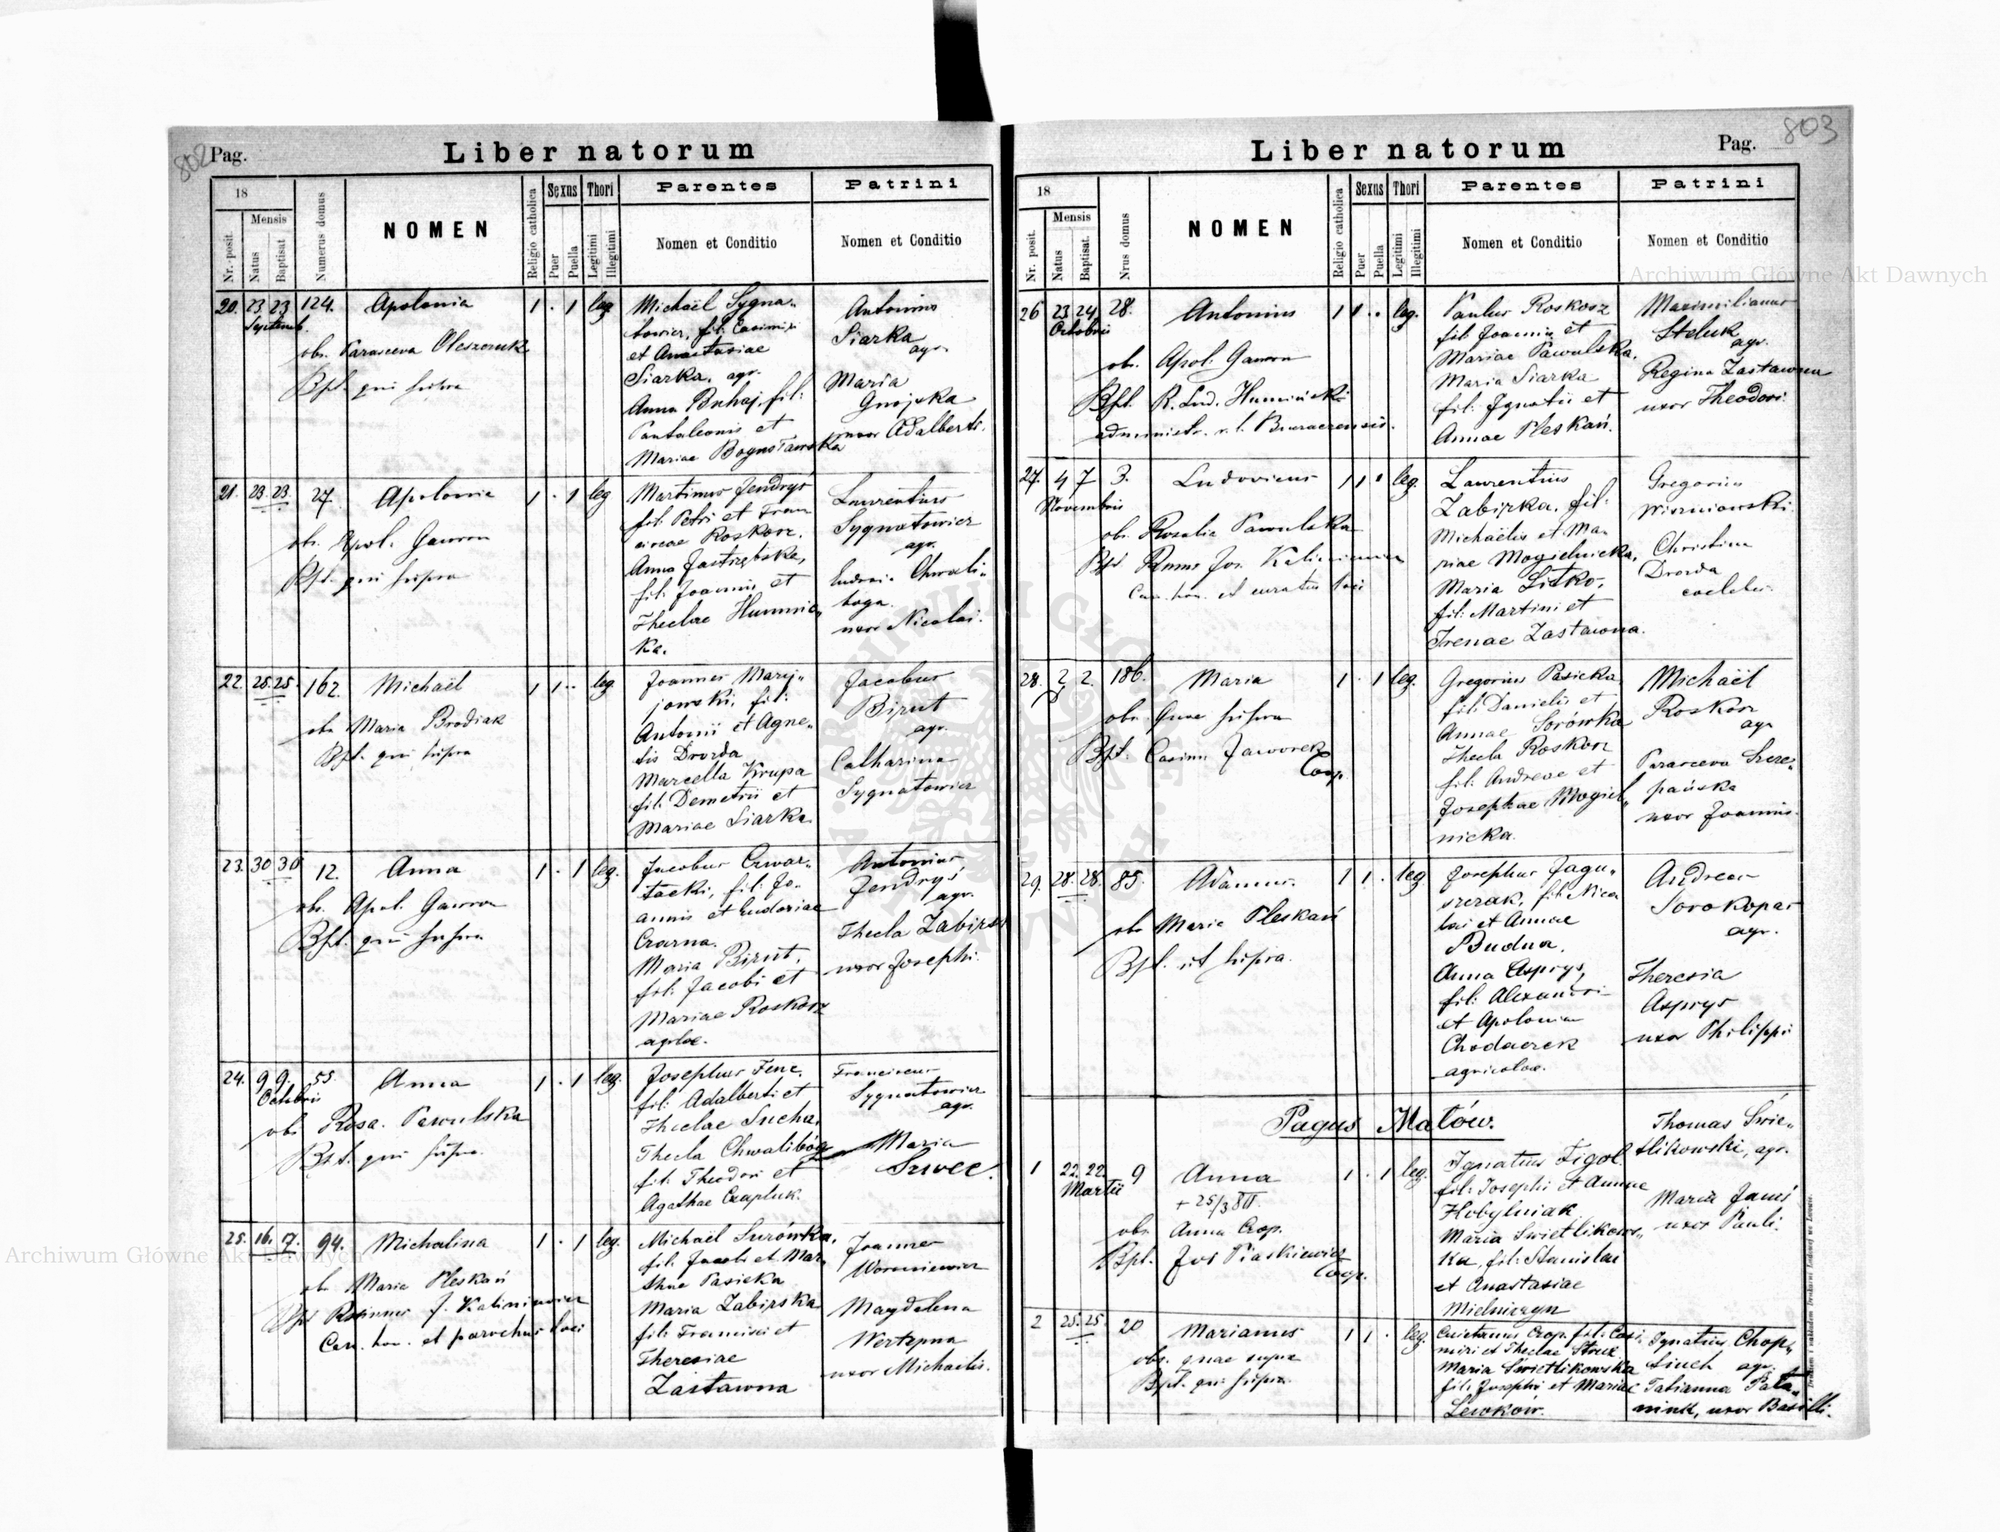 802
Pag.
Liber natorum
18
Mensis
Nr. posit.
Natus
Baptisat.
Numerus domus
NOMEN
Religio catholica
Sexus
Puer
Puella
Thori
Legitimi
Illegitimi
Parentes
Nomen et Conditio
Patrini
Nomen et Conditio
20. 23 23 124. Apolonia 1 . 1 leg
Septemb.
obs. Parasceva Oleszczuk
Bpt. qui supra
Michaël Sygna-
towicz, fil: Casimiri
et Anastasiae
Siarka, agr.
Anna Buhaj, fil:
Pantaleonis et
Mariae Bogusławska
Antonius
Siarka
agr.
Maria
Gnojska
uxor Adalberti.
21. 23. 23. 27. Apolonia 1 . 1 leg
ob. Apol. Gawron
Bpt. qui supra
Martinus Jendryś
fil: Petri et Fran
ciscae Roskosz.
Anna Jastrzębska,
fil: Joannis et
Theclae Humnic
ka.
Laurentius
Sygnatowicz
agr.
Eudoxia Chwali-
boga
uxor Nicolai.
22. 25. 25. 162. Michaël 1 1 . . leg
obs Maria Brodiak
Bpt. qui supra
Joannes Mary-
jowski, fil:
Antonii et Agne-
tis Drozda
Marcella Krupa
fil: Demetrii et
Mariae Siarka.
Jacobus
Birut
agr.
Catharina
Sygnatowicz
23. 30 30 12. Anna 1 . 1 leg.
obs. Apol. Gawron
Bpt. qui supra
Jacobus Czwar-
tacki, fil: Jo-
annis et Eudoxiae
Czarna.
Maria Birut,
fil: Jacobi et
Mariae Roskosz
agrlae.
Antonius
Jendryś
agr.
Thecla Zabirs
uxor Josephi.
24. 9 9. 55. Anna 1 . 1 leg.
Octobris
obs Rosa. Pawulska
Bpt. qui supra.
Josephus Fenc,
fil: Adalberti et
Theclae Sucha,
Thecla Chwalibóg
fil: Theodori et
Agathae Czapluk.
Franciscus
Sygnatowicz
agr.
Maria
Szwec.
25. 16. 17. 94. Michalina 1 . 1 leg.
ob. Maria Pleskań
Bpt J. Kaliniewicz
Can. hon. et parochus loci
Michaël Surówka,
fil: Jacobi et Mar-
thae Pasicka
Maria Zabirska
fil: Francisci et
Theresiae
Zastawna
Joannes
Woroniewicz
Magdalena
Wertypna
uxor Michaëlis.
Liber natorum
Pag.
803
18
Mensis
Nr. posit.
Natus
Baptisat.
Nrus domus
NOMEN
Religio catholica
Sexus
Puer
Puella
Thori
Legitimi
Illegitimi
Parentes
Nomen et Conditio
Patrini
Nomen et Conditio
26 23 24 28. Antonius 1 1 . . leg.
Octobris
ob. Apol. Gawron
Bpt. R. Lud. Humiński
administr. r. l. Buczacensis.
Paulus Roskosz
fil Joannis et
Mariae Pawulska.
Maria Siarka
fil: Ignatii et
Annae Pleskań.
Maximilianus
Steluk
agr.
Regina Zastawna
uxor Theodori
27. 4 7 3. Ludovicus 1 1 . leg.
Novembris
ob. Rosalia Pawulska
Bpt Jos. Kaliniewicz
Can. hon. et curatus loci
Laurentius
Zabirka, fil:
Michaëlis et Ma-
riae Mogielnicka,
Maria Litko,
fil: Martini et
Irenae Zastawna.
Gregorius
Wiszniowski.
Christina
Drozda
caelebs.
28. 2 2. 186. Maria 1 . 1 leg.
obs Quae supra
Bpt. Casim. Jaworek
Coop.
Gregorius Pasicka
fil: Danielis et
Annae Sorówka
Thecla Roskosz
fil: Andreae et
Josephae Mogiel-
nicka.
Michaël
Roskosz
agr
Parasceva Szcze-
pańska
uxor Joannis.
29. 28. 28. 85. Adamus. 1 1 . leg
obs Maria Pleskań
Bpt. ut supra.
Josephus Jagu-
szczak, fil: Nico
lai et Annae
Budna.
Anna Aspryś,
fil: Alexandri
et Apolonia
Chodaczek
agricolae.
Andreas
Sorokopas
agr.
Theresia
Asprys
uxor Philippi
Pagus Małów.
1 22. 22. 9 Anna 1 . 1 leg.
Martii
+ 25/3 8II
obs. Anna Czop.
Bpt. Jos Piaskiewicz
Coop.
Ignatius Figol
fil: Josephi et Annae
Hobylniak
Maria Swietlikows-
ka, fil: Stanislai
et Anastasiae
Mielniczyn
Thomas Świe-
tlikowski, agr.
Maria Janiś
uxor Pauli.
2 25. 25. 20 Marianus 1 1 . leg
obs. quae supra
Bpt. qui supra.
Cajetanus Czop, fil: Casi-
miri et Theclae Struc
Maria Świetlikowska
fil: Josephi et Mariae
Lewków.
Ignatius Chop-
tiuch agr.
Tatianna Pata-
niuk, uxor Basilii.
Drukiem i nakładem Drukarni Ludowej we Lwowie.
Archiwum Główne Akt Dawnych
Archiwum Główne Akt Dawnych
ARCHIWUM GŁÓWNE AKT DAWNYCH